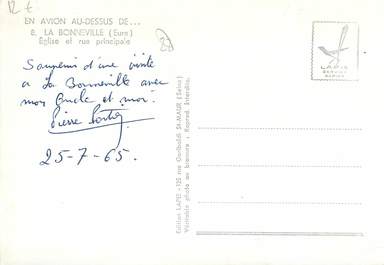 12 €
EN AVION AU-DESSUS DE...
8. LA BONNEVILLE (Eure)
Église et rue principale
Souvenir d'une visite
a La Bonneville avec
mon Oncle et moi.
Pierre
25-7-65.
LAPIE
Édition LAPIE - 125 rue Garibaldi St-MAUR (Seine)
Véritable photo au bromure - Reprod. Interdite.